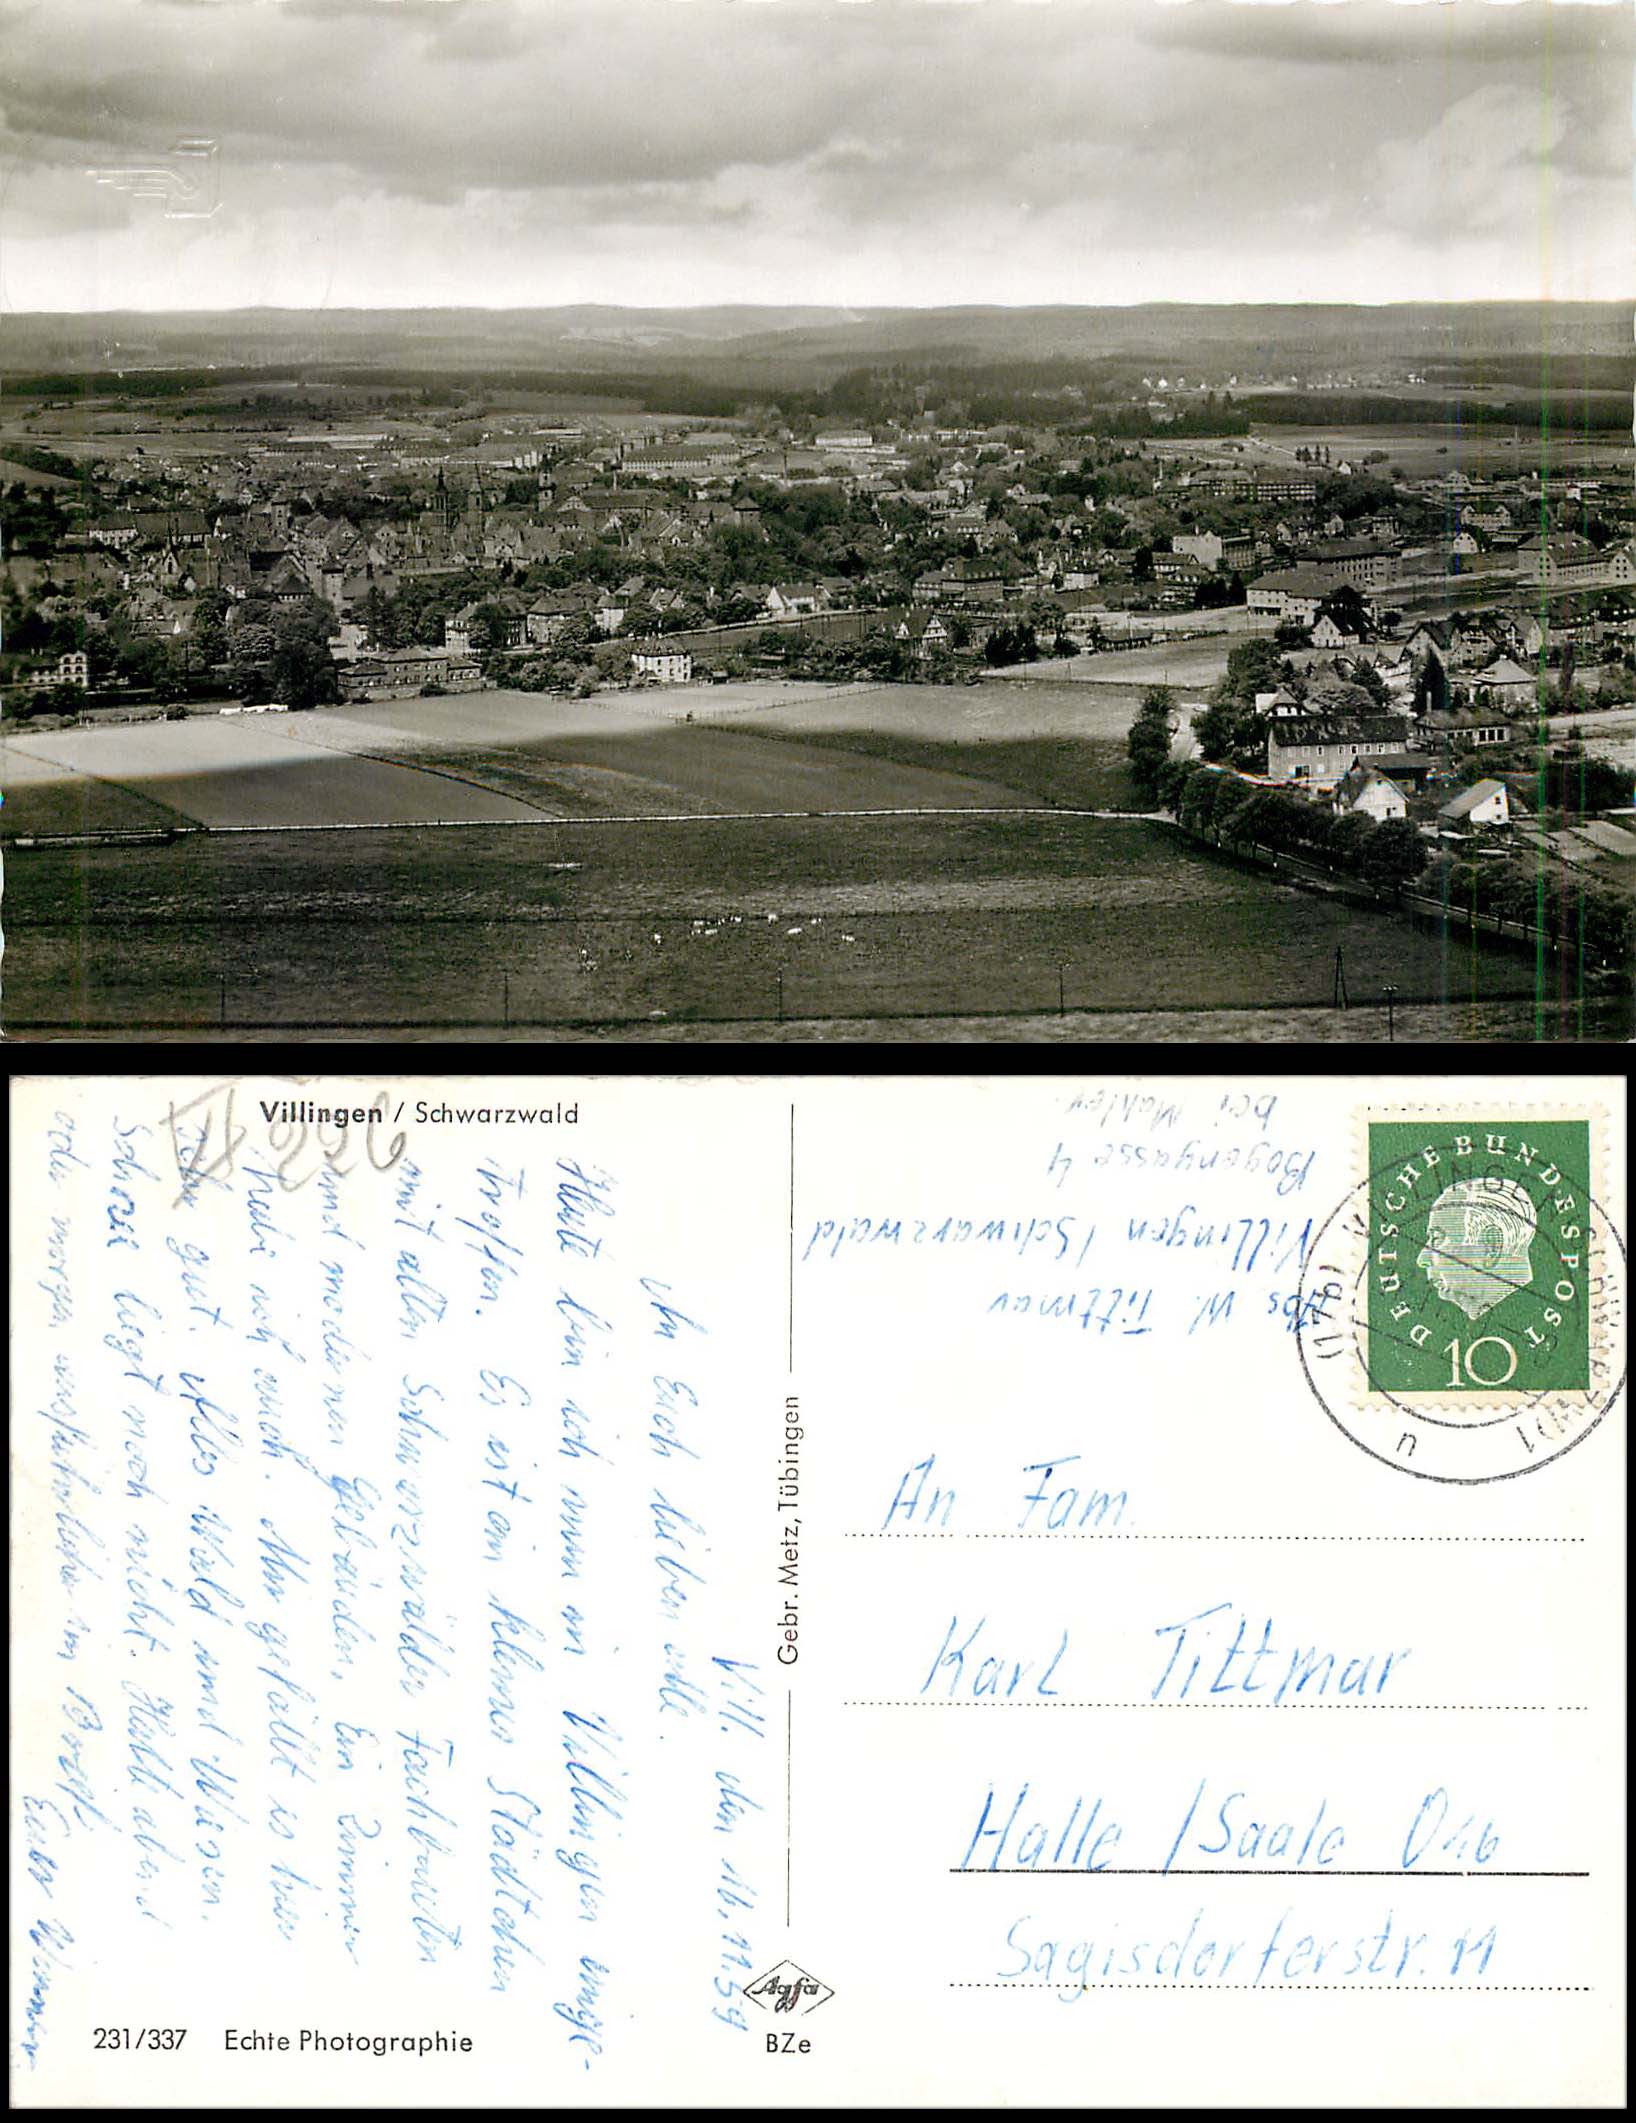 Villingen / Schwarzwald
Vill. den 16.11.59
An Euch lieben alle.
Heute bin ich nun in Villingen einge-
troffen. Es ist ein kleines Städtchen
mit alten Schwarzwälder Fachbauten
und modernen Gebäuden. Ein Zimmer
habe ich auch. Mir gefällt es hier
sehr gut. Alles Wald und Wiesen.
Schnee liegt noch nicht. Heute abend
oder morgen ausführlicher im Brief.
Euer
231/337 Echte Photographie
Gebr. Metz, Tübingen
Agfa
BZe
Abs W. Tittmar
Villingen / Schwarzwald
Bogengasse 4
bei
DEUTSCHE BUNDESPOST
10
(17b) VILLINGEN SCHWARZWALD 1
u
An Fam.
Karl Tittmar
Halle / Saale
Sagisdorferstr. 11